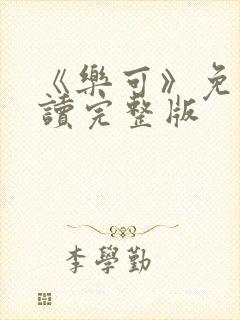 《樂可》免
讀完整版
李學勤